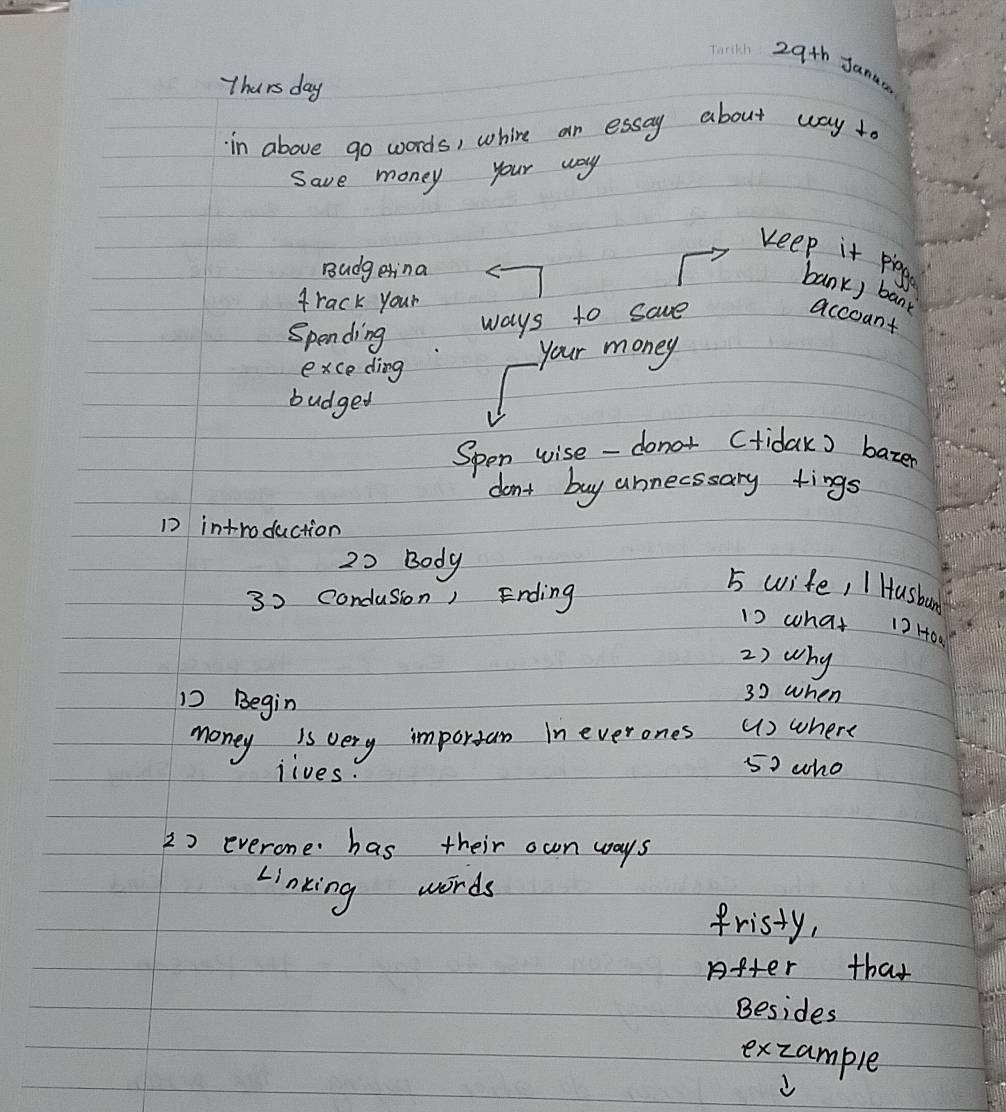 Tarikh 29th
Thursday
in above 90 words, whire an essay about way to
Save money your way
Keep it
bank, bank
account
Budgetina
track your
Spending
exceding
budget
ways to save
your money
Spen wise - donot (tidak) bazer
dont buy unnecssary tings
1) introduction
2) Body
3) Conclusion, Ending
5 wife, 1 Husband
1) what 1) How
2) why
3) when
4) where
5) who
1) Begin
money is very importan in everones
lives.
2) everone. has their own ways
Linking words
fristy,
After that
Besides
exzample
↓